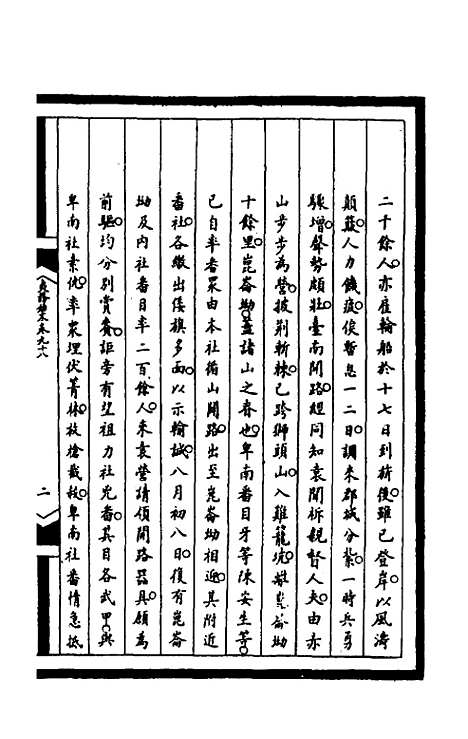 二千餘人亦雇輪船於十七日到蔣後雖已登岸以風濤
顛簸人力饑疲俟暫息一二日調來郡城分紮一時兵勇
驟增聲勢頗壯臺南開路經同知袁聞柝親督人夫由赤
山步步為營披荆斬棘已跨獅頭山入雞籠坑崑崙坳
十餘里崑崙坳蓋諸山之脊也卑南番目牙等陳安生等
已自率番眾由本社循山開路出至崑崙坳相近其附近
番社各繳出倭旗多面以示輸誠八月初八日復有崑崙
坳及內社番目率二百餘人來袁營請領開路器具願為
前驅均分別賞賚詎旁有望祖力社兇番其目各武甲與
卑南社素仇率眾埋伏菁林放槍截殺卑南社番情急抵
卷九十八
二